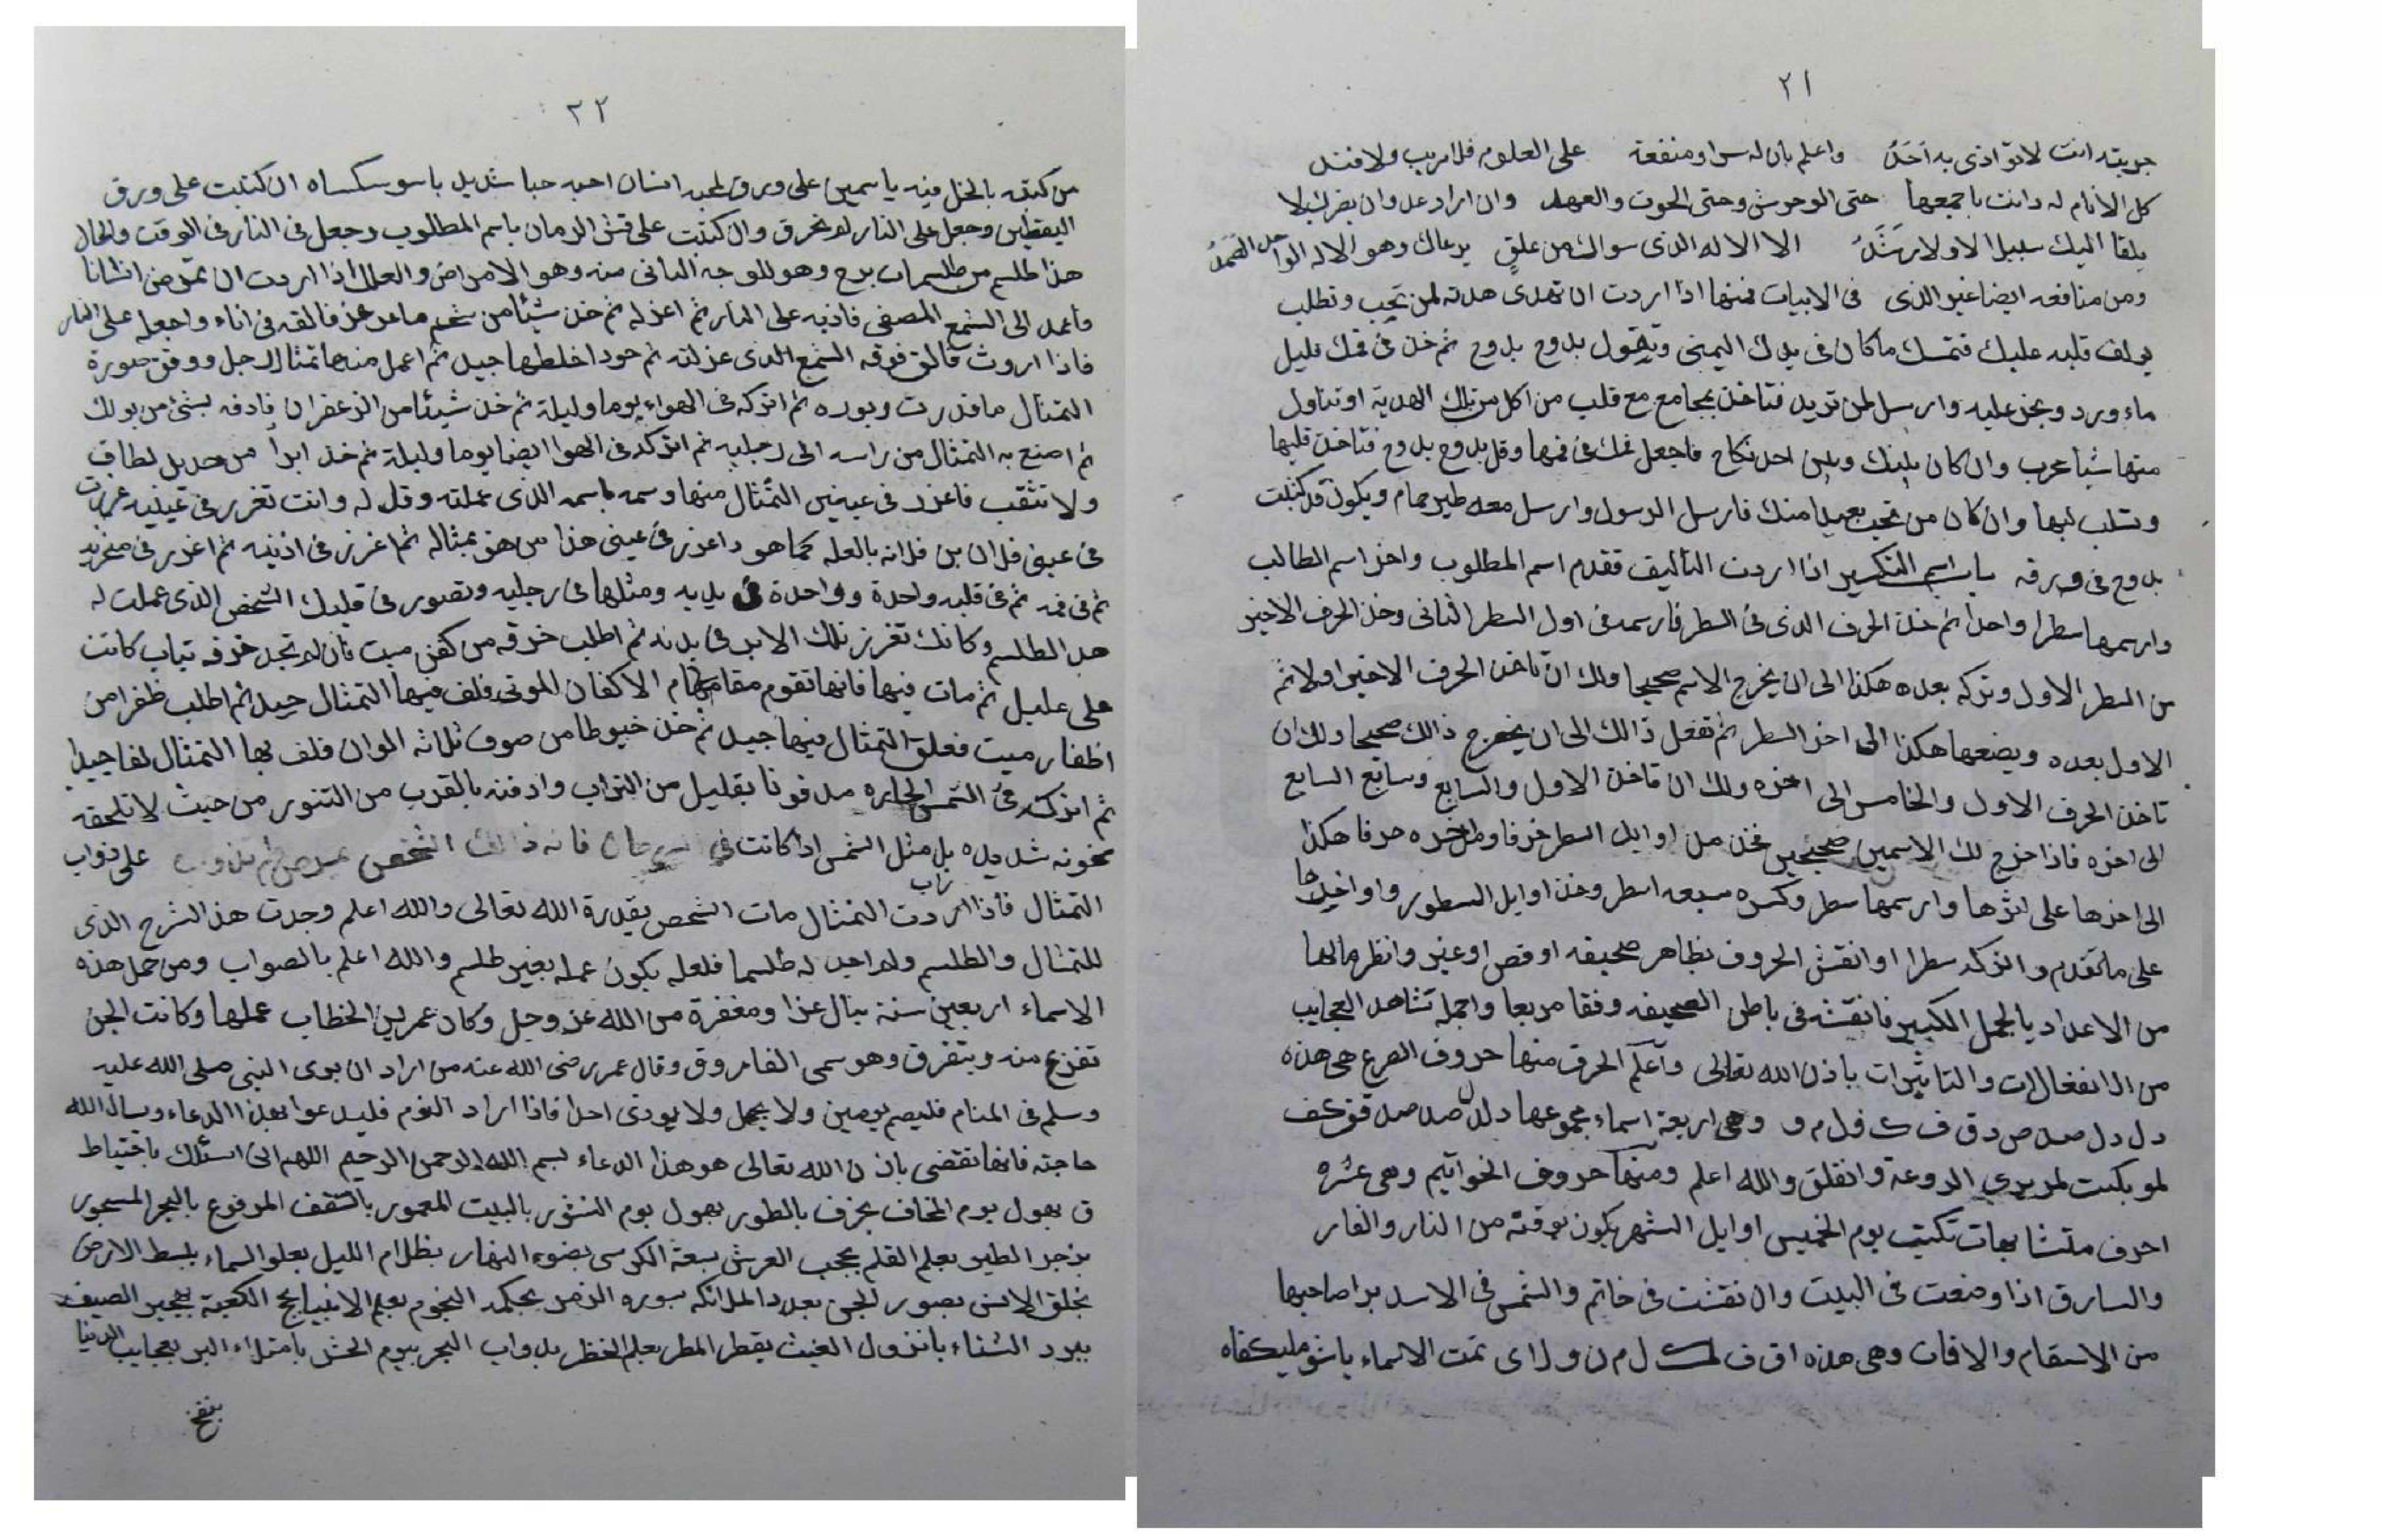 ٢١
واعلم بان له سرا ومنفعة على العلوم فلا ريب ولا فند
كل الانام له دانت باجمعها حتى الوحوش وحتى الحوت وان اراد عدوان يضرك لا
يلقا اليك سبيلا لا ولا رشد الا الاله الذى سواك من علق يرعاك وهو الاله الواحد الصمد
ومن منافعه ايضا غير الذى فى الابيات فمنها اذا اردت ان تهدى هدية لمن تحب وتطلب
يولف قلبه عليك فتمسك ما كان فى يدك اليمنى وتقول بدوح بدوح ثم خذ فى فمك قليل
ماء ورد وبخ عليه وارسل لمن تريد فتاخذ بمجامع قلب من اكل من تلك الهدية او تناول
منها شيا عرب وان كان بينك وبين احد نكاح فاجعل فمك فى فمها وقل بدوح بدوح فتاخذ قلبها
وتسلب لبها وان كان من تحب بعيدا منك فارسل الرسول وارسل معه طير حمام ويكون قد كتبت
بدوح فى ورقه باب اسم التكسير اذا اردت التأليف فقدم اسم المطلوب واخر اسم الطالب
وارسمها سطرا واحدا ثم خذ الحرف الذى فى السطر فارسمه فى اول السطر الثانى وخذ الحرف الاخير
من السطر الاول وتركه بعده هكذا الى ان يخرج الاسم صحيحا ولك ان تاخذ الحرف الاخير اولا ثم
الاول بعده ويضعها هكذا الى اخر السطر ثم تفعل ذالك الى ان يخرج ذالك صحيحا ولك ان
تاخذ الحرف الاول والخامس الى اخره ولك ان تاخذ الاول والسابع وسابع السابع
الى اخره فاذا خرج لك الاسمين صحيحين فخذ من اوايل السطر حرفا ومن اخره حرفا هكذا
الى اخرها على اثرها وارسمها سطر وكسره سبعه اسطر وخذ اوايل السطور واواخرها
على ما تقدم واتركه سطرا وانقش الحروف بظاهر صحيفه او فص او غير وانظر مالها
من الاعداد بالجمل الكبير فانقشه فى باطن الصحيفه وفقا مربعا واحمله تشاهد العجايب
من الانفعالات والتاثيرات باذن الله تعالى واعلم الحرق منها حروف الصرع هى هذه
د ل د ل ص د ق ف ك ف ل م و وهى اربعة اسماء مجموعها
الروعة وانفلق والله اعلم ومنها حروف الخواتيم وهى عشره
احرف متشابهات تكتب يوم الخميس اوايل الشهر يكون بوقته من النار والفار
والسارق اذا وضعت فى البيت وان نقشت فى خاتم والشمس فى الاسد برا صاحبها
من الاسقام والافات وهى هذه ا ق ف ل م ن و ل ا ى تمت الاسماء
٢٢
من كتبه بالخل فيه ياسمين على ورق لمحبه انسان احبه حبا شديد ان كتبت على ورق
اليقطين وجعل على النار لم تحرق وان كتبت على قش الرمان باسم المطلوب وجعل فى النار فى الوقت والحال
هذا طلسم من طلسمات برج وهو للوجه الثانى منه وهو الامراض والعلل اذا اردت ان تمرض انسانا
فاعمد الى الشمع المصفى فاذبه على النار ثم اعزله ثم خذ شيئا من شحم ماعز فالقه فى اناء واجعله على النار
فاذا فالق فوقه الشمع الذى عزلته ثم اخلطها جيد ثم اعمل منها تمثال رجل صورة
التمثال ما قدرت وبوره ثم اتركه فى الهواء يوما وليلة ثم خذ شيئا من الزعفران فادفه بشئ من بولك
ثم اصنع به التمثال من راسه الى رجليه ثم اتركه فى الهوا ايضا يوما وليلة ثم خذ ابرا من حديد لطاف
ولا تثقب فاغزر فى عينين التمثال منها وسمه باسم الذى عملته وقل له وانت تغرز فى عينيه غرزت
فى عينى فلان بن فلانه بالعله كما هو داغرز فى عينى هذا من هو بمثاله ثم اغرز فى اذنيه ثم اغرز فى منخريه
ثم فى فمه ثم فى قلبه واحدة وواحدة فى يديه ومثلها فى رجليه وتصور فى قلبك الشخص الذى عملت له
هذا الطلسم وكانك تغرز تلك الابر فى بدنه ثم اطلب خرقه من كفن ميت فان لم تجد خرقه تياب كانت
على عليل ثم مات فيها فانها تقوم مقام الاكفان الموتى فلف فيها التمثال جيد ثم اطلب ظفرا من
اظفار ميت فعلق التمثال فيها جيد ثم خذ خيوطا من صوف ثلاثه الوان فلف بها التمثال لفا جيدا
ثم اتركه فى الشمس الحاره مدفونا بقليل من التراب وادفنه بالقرب من التنور من حيث لا تلحقه
سخونه شديده بل مثل الشمس اذا كانت فى فانه ذالك الشخص على ذواب
التمثال فاذا ذاب التمثال مات الشخص بقدرة الله تعالى والله اعلم وجدت هذا الشرح الذى
للتمثال والطلسم ولم اجد له طلسما فلعله يكون عمله بغير طلسم والله اعلم بالصواب ومن حمل هذه
الاسماء اربعين سنة ينال عزا ومغفرة من الله عز وجل وكان عمر بن الخطاب عملها وكانت الجن
تفزع منه ويتفرق وهو سمى الفاروق وقال عمر رضى الله عنه من اراد ان يرى النبى صلى الله عليه
وسلم فى المنام فليصم يومين ولا يجهل ولا يوذى احدا فاذا اراد النوم فليدعوا بهذا الدعاء ويسال الله
حاجته فانها تقضى باذن الله تعالى هو هذا الدعاء بسم الله الرحمن الرحيم اللهم انى اسئلك
ق بهول يوم المخاف بحرف بالطور بهول يوم النشور بالبيت المعمور بالسقف المرفوع بالبحر المسجور
بزجر الطير بعلم القلم بحجب العرش بسعة الكرسى بضوء النهار بظلام الليل بعلو السماء ببسط الارض
بخلق الانس بصور الجن بعدد الملائكه بحكمة النجوم بعلم الانبيا بحج الكعبة الصيف
ببرد الشتاء بانزول الغيث بقطر المطر بعلم الخظر بدواب البحر بيوم الحشر بامتلاء البر بعجايب الدنيا
بنفخ